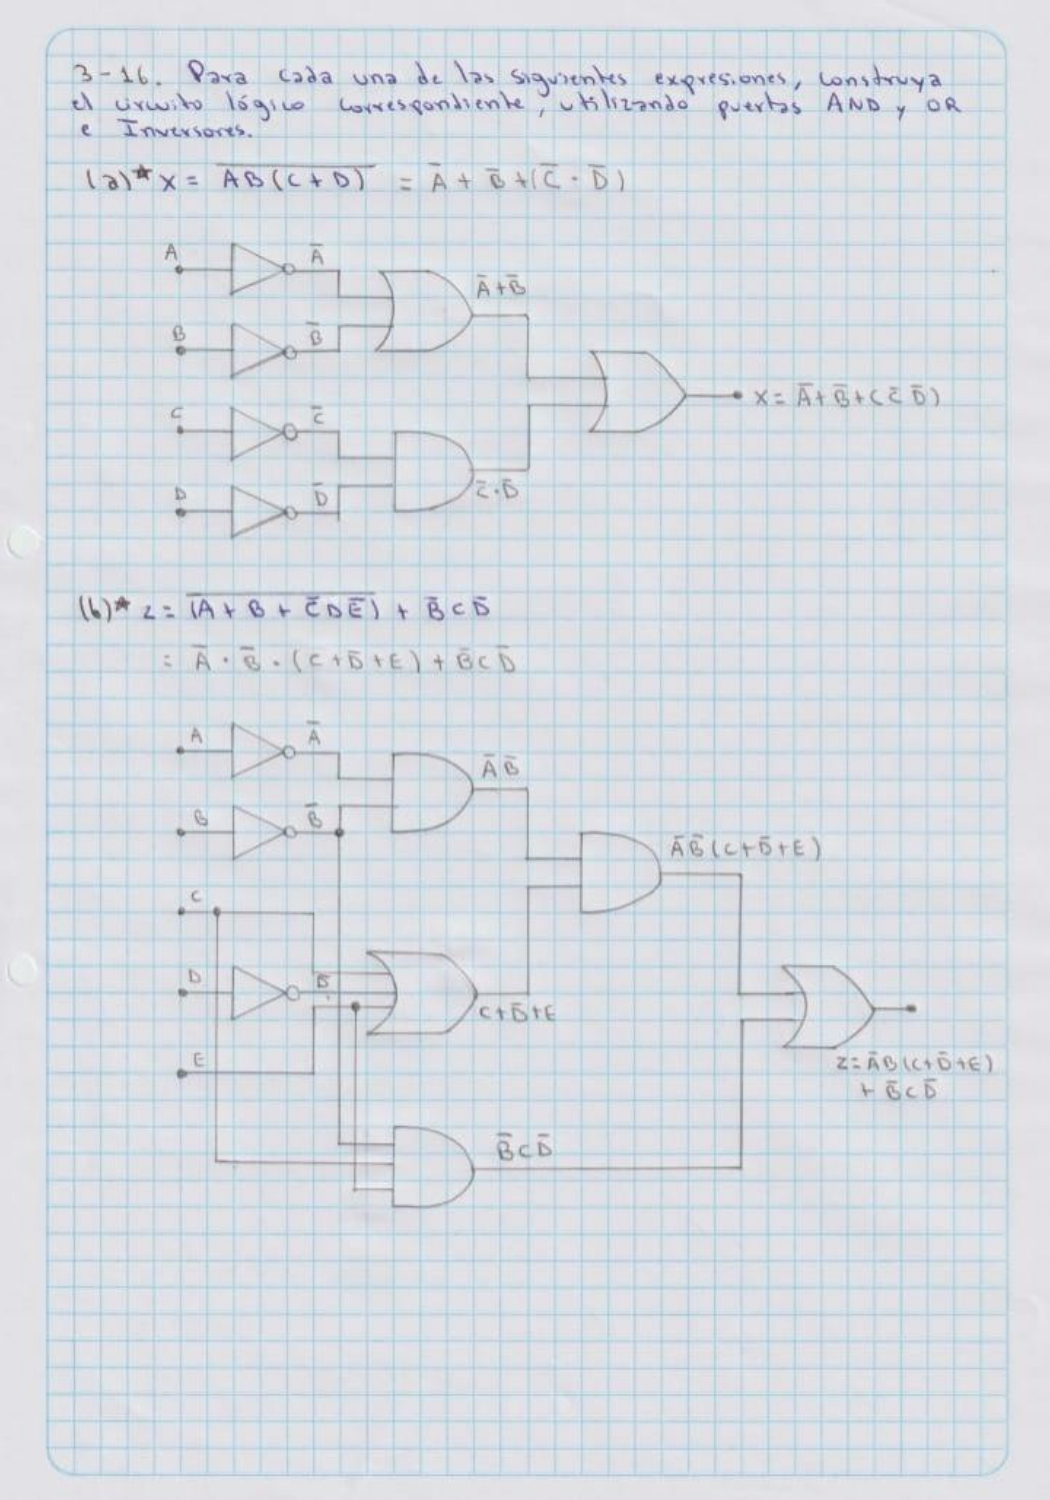 3-16. Para cada una de las siguientes expresiones, construya
el circuito lógico correspondiente, utilizando puertas AND y OR
e Inversores.
(a)* X = \overline{AB(C+D)} = A̅ + B̅ + (C̅ · D̅)
A
A̅
A̅+B̅
B
B̅
X = A̅ + B̅ + (C̅ D̅)
C
C̅
D
D̅
C̅·D̅
(b)* Z = \overline{(A + B + C̅DE̅)} + B̅CD̅
= A̅ · B̅ · (C + D̅ + E) + B̅CD̅
A
A̅
A̅B̅
B
B̅
A̅B̅(C+D̅+E)
C
D
D̅
C+D̅+E
E
Z = A̅B(C+D̅+E)
+ B̅CD̅
B̅CD̅